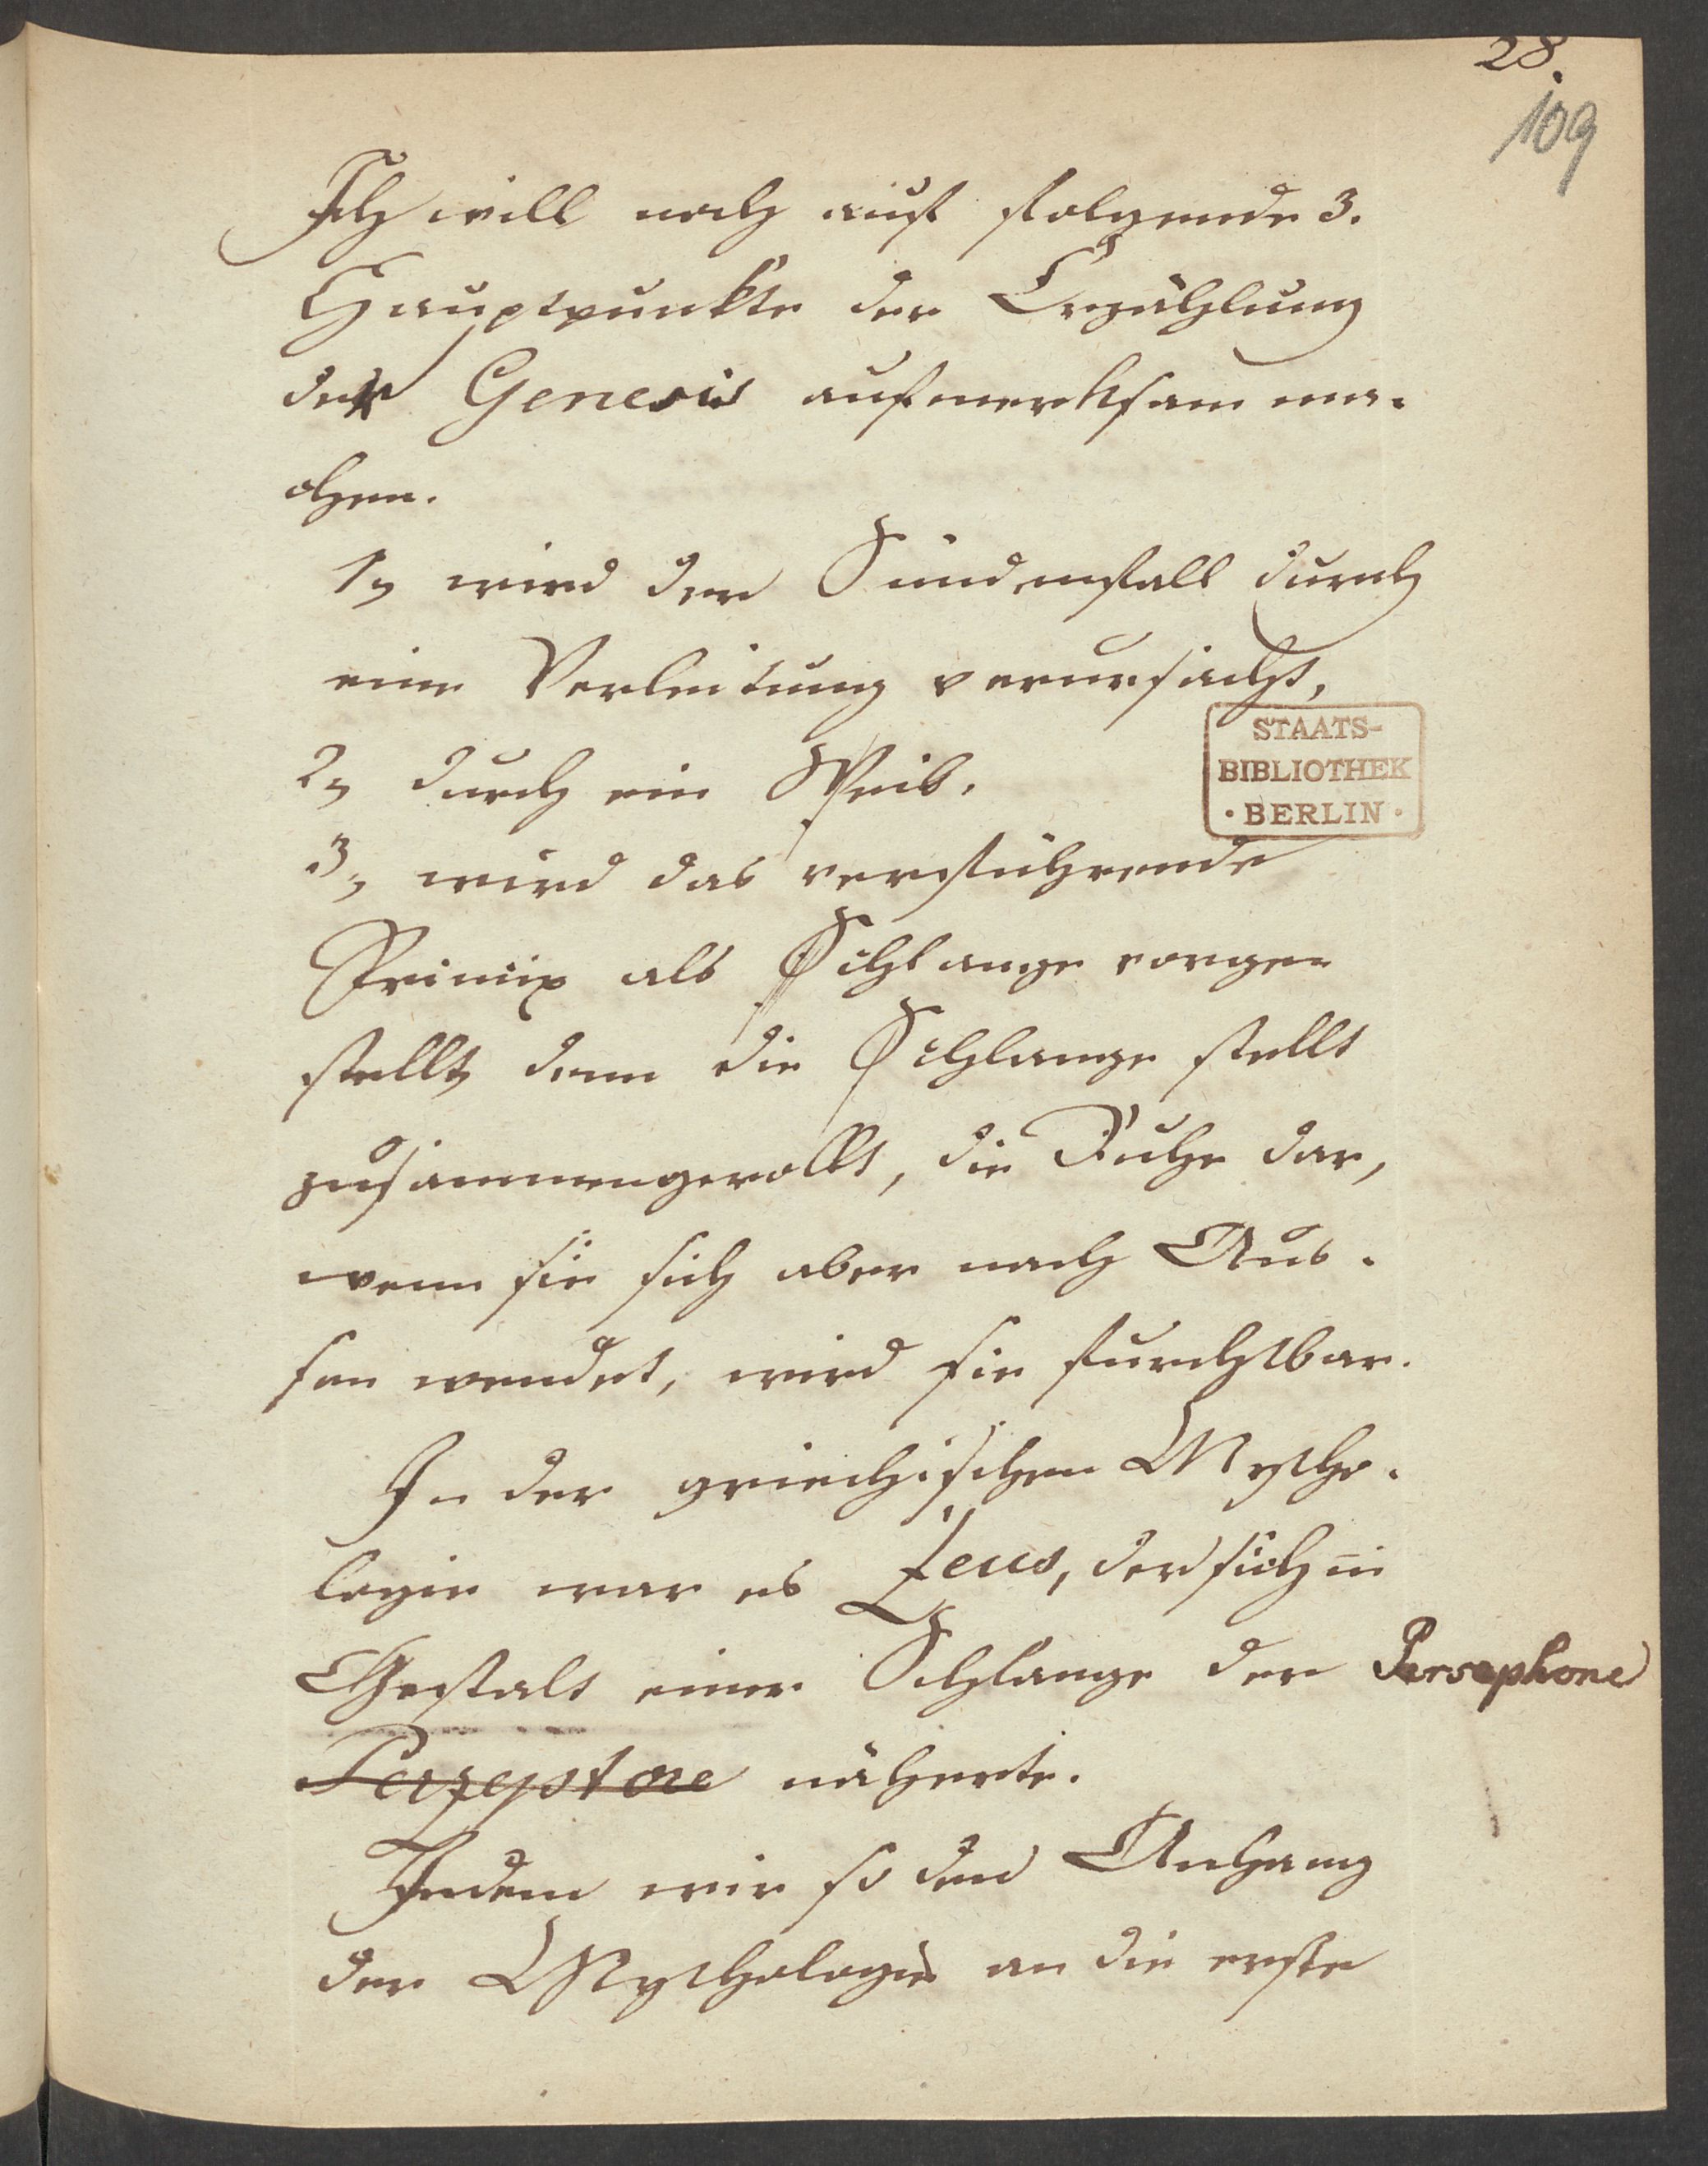 28.
109
Ich will noch auf folgende 3.
Hauptpunkte der Erzählung
der Genesis aufmerksam ma-
chen.
1, wird der Sündenfall durch
eine Verleitung verursacht,
2, durch ein Weib.
3, wird das verführende
Prinzip als Schlange vorge-
stellt, denn die Schlange stellt
zusammengerollt, die Ruhe dar,
wenn sie sich aber nach Aus-
sen wendet, wird sie furchtbar.
In der griechischen Mytho-
logie war es Zeus, der sich in
Gestalt einer Schlange der Persephone
näherte.
Indem wir so den Anhang
der Mythologie an die erste
STAATS-
BIBLIOTHEK
· BERLIN ·